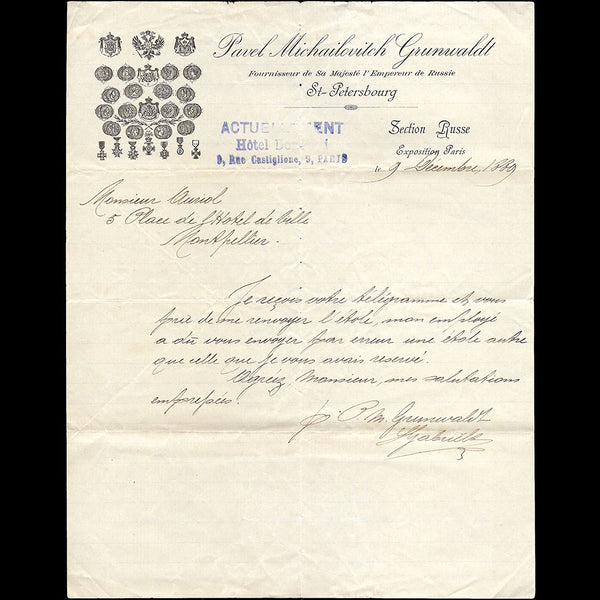 Pavel Michailovitch Grunwaldt
Fournisseur de Sa Majesté l'Empereur de Russie
St-Petersbourg
ACTUELLEMENT
Hôtel
9, Rue Castiglione, 9, PARIS
Section Russe
Exposition Paris
le 9 Décembre 1889
Monsieur Auriol
5 Place de l'Hotel de Ville
Montpellier.
Je reçois votre télégramme et vous
prie de me renvoyer l'étole, mon employé
a dû vous envoyer par erreur une étole autre
que celle que je vous avais reservé.
Agréez, Monsieur, mes salutations
empressées.
P. M. Grunwaldt